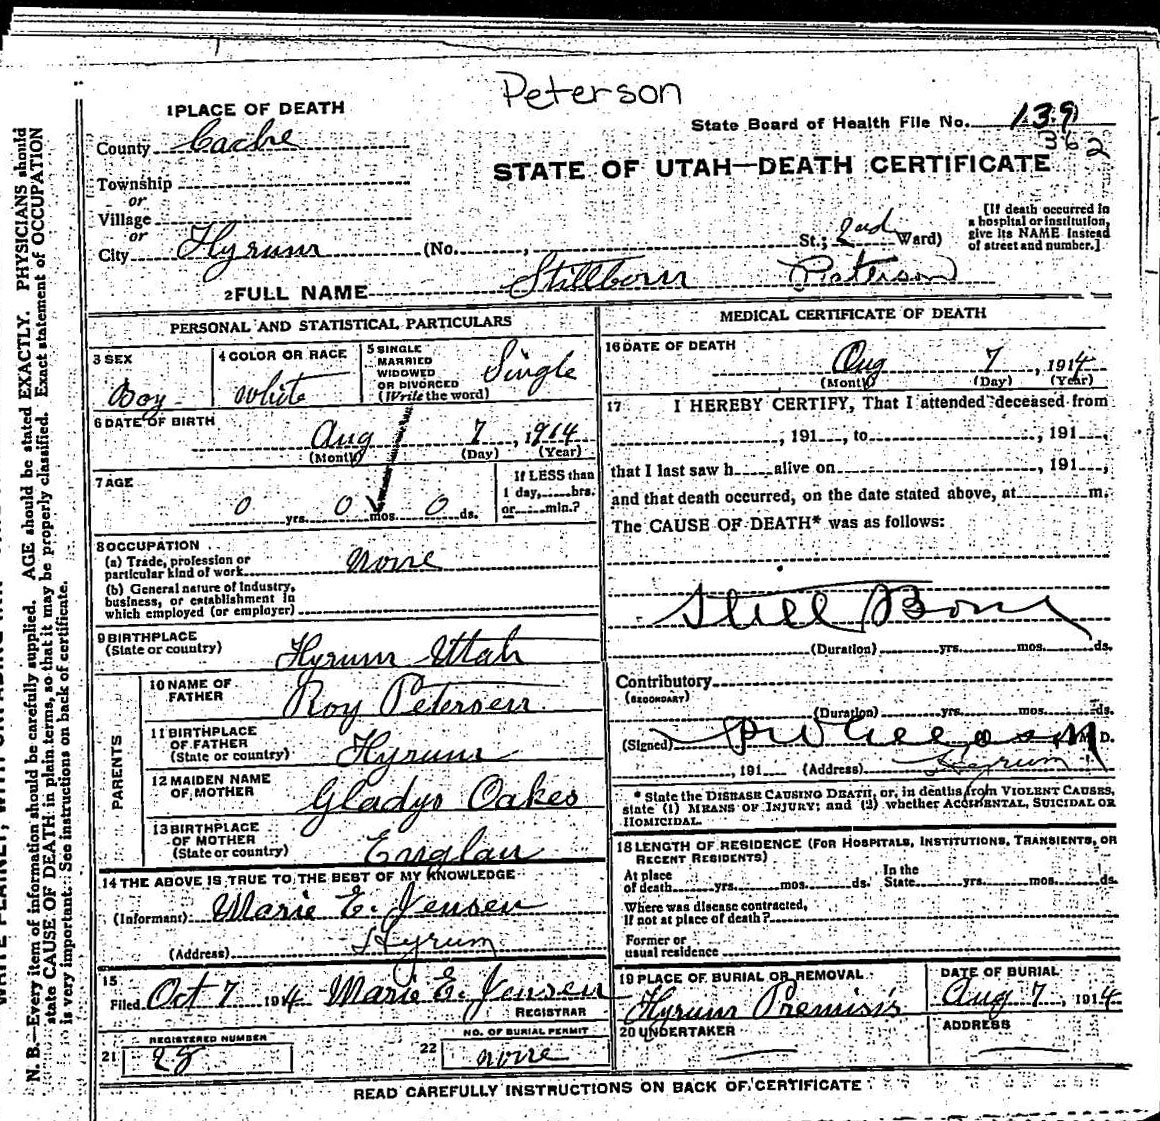 Peterson
1 PLACE OF DEATH
State Board of Health File No. 139
362
County Cache
STATE OF UTAH—DEATH CERTIFICATE
Township
or
Village
or
City Hyrum (No. , St.; 2nd Ward)
[If death occurred in a hospital or institution, give its NAME instead of street and number.]
2 FULL NAME Stillborn Peterson
PERSONAL AND STATISTICAL PARTICULARS
3 SEX Boy
4 COLOR OR RACE White
5 SINGLE MARRIED WIDOWED OR DIVORCED (Write the word) Single
6 DATE OF BIRTH Aug 7, 1914
(Month) (Day) (Year)
7 AGE 0 yrs. 0 mos. 0 ds.
If LESS than 1 day, hrs. or min.?
8 OCCUPATION
(a) Trade, profession or particular kind of work none
(b) General nature of industry, business, or establishment in which employed (or employer)
9 BIRTHPLACE
(State or country) Hyrum Utah
PARENTS
10 NAME OF FATHER Roy Petersen
11 BIRTHPLACE OF FATHER (State or country) Hyrum
12 MAIDEN NAME OF MOTHER Gladys Oakes
13 BIRTHPLACE OF MOTHER (State or country) Englan
14 THE ABOVE IS TRUE TO THE BEST OF MY KNOWLEDGE
(Informant) Marie E. Jensen
(Address) Hyrum
15
Filed Oct 7 1914 Marie E. Jensen
REGISTRAR
21 REGISTERED NUMBER 28
22 NO. OF BURIAL PERMIT none
MEDICAL CERTIFICATE OF DEATH
16 DATE OF DEATH
Aug 7, 1914
(Month) (Day) (Year)
17 I HEREBY CERTIFY, That I attended deceased from
, 191 , to , 191 ,
that I last saw h alive on , 191 ,
and that death occurred, on the date stated above, at m.
The CAUSE OF DEATH* was as follows:
Still Born
(Duration) yrs. mos. ds.
Contributory
(SECONDARY)
(Duration) yrs. mos. ds.
(Signed) M. D.
, 191 (Address) Hyrum
* State the DISEASE CAUSING DEATH, or, in deaths from VIOLENT CAUSES, state (1) MEANS OF INJURY; and (2) whether ACCIDENTAL, SUICIDAL OR HOMICIDAL.
18 LENGTH OF RESIDENCE (FOR HOSPITALS, INSTITUTIONS, TRANSIENTS, OR RECENT RESIDENTS)
At place of death yrs. mos. ds. In the State yrs. mos. ds.
Where was disease contracted, If not at place of death?
Former or usual residence
19 PLACE OF BURIAL OR REMOVAL Hyrum Premisis
DATE OF BURIAL Aug 7, 1914
20 UNDERTAKER
ADDRESS
READ CAREFULLY INSTRUCTIONS ON BACK OF CERTIFICATE
N. B.—Every item of information should be carefully supplied. AGE should be stated EXACTLY. PHYSICIANS should
state CAUSE OF DEATH in plain terms, so that it may be properly classified. Exact statement of OCCUPATION
is very important. See instructions on back of certificate.